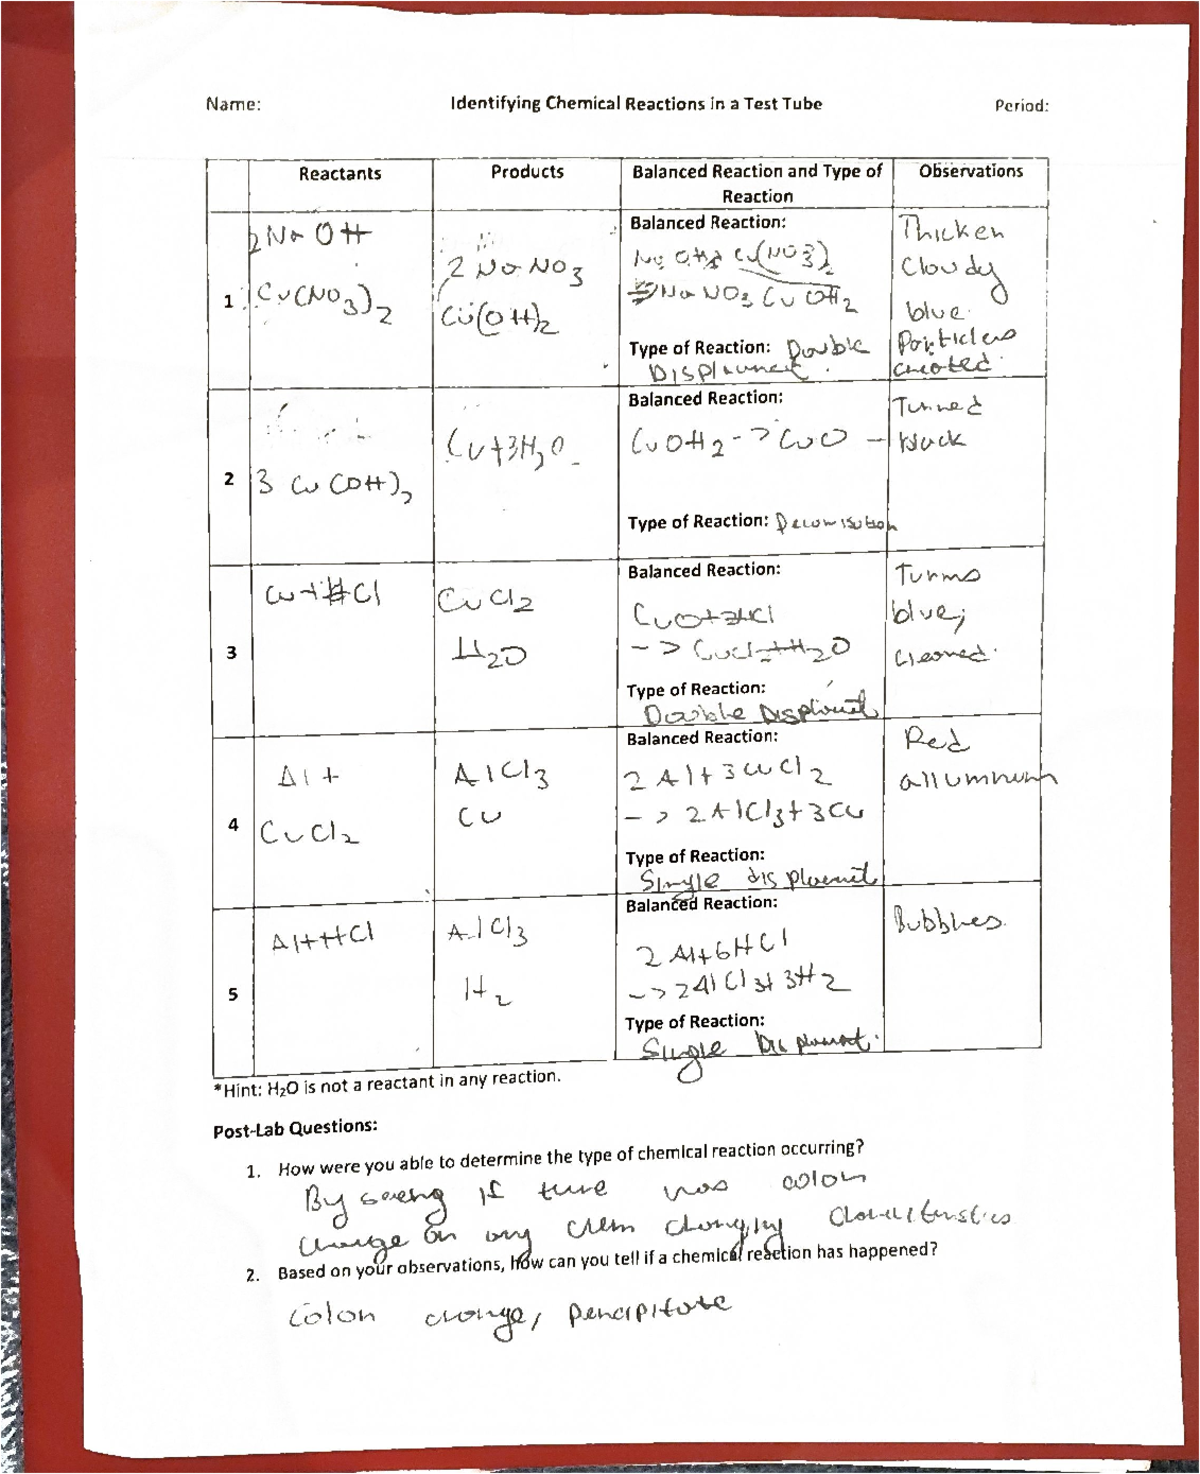 Name: Identifying Chemical Reactions in a Test Tube Period:
Reactants Products Balanced Reaction and Type of Reaction Observations
1
2 NaOH
Cu(NO3)2
2 NaNO3
Cu(OH)2
Balanced Reaction:
Cu(NO3)2
NaNO3 CuOH2
Type of Reaction: Double
Thicken
Cloudy
blue
Particles
created.
2
3 Cu(OH)2
Cu+3H2O
Balanced Reaction:
CuOH2 -> CuO -
Type of Reaction:
Turned
black
3
Cu+HCl
CuCl2
H2O
Balanced Reaction:
CuO+2HCl
-> CuCl2+H2O
Type of Reaction:
Double
Turns
blue;
cleared.
4
Al +
CuCl2
AlCl3
Cu
Balanced Reaction:
2 Al+3CuCl2
-> 2AlCl3+3Cu
Type of Reaction:
Single
Red
5
Al+HCl
AlCl3
H2
Balanced Reaction:
2 Al+6HCl
->2AlCl3+3H2
Type of Reaction:
Single
Bubbles.
*Hint: H2O is not a reactant in any reaction.
Post-Lab Questions:
1. How were you able to determine the type of chemical reaction occurring?
By seeing if there was color
change or any changing
2. Based on your observations, how can you tell if a chemical reaction has happened?
Color change,